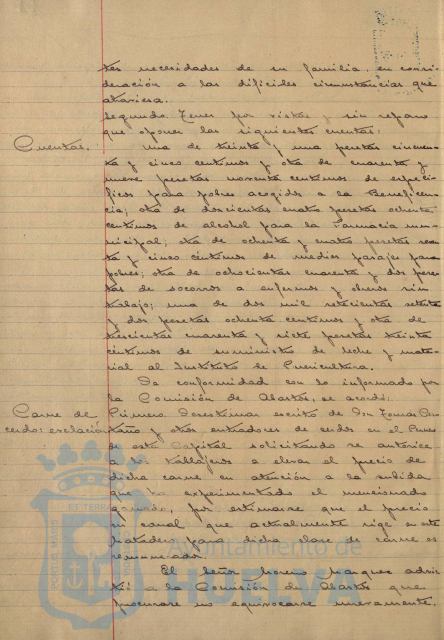 tes necesidades de su familia, en consi-
deración a las difíciles circunstancias que
atraviesa.
Segundo. Tener por vistas y sin reparo
que oponer las siguientes cuentas:
Cuentas.
Una de treinta y una pesetas cincuen-
ta y cinco centimos y otra de cuarenta y
nueve pesetas noventa centimos de especí-
ficos para pobres acogidos a la Beneficen-
cia; otra de doscientas cuatro pesetas ochenta
centimos de alcohol para la Farmacia mu-
nicipal; otra de ochenta y cuatro pesetas
y cinco centimos de medios pasajes para
pobres; otra de ochocientas cuarenta y dos pese-
tas de socorros a enfermos y obreros sin
trabajo; una de dos mil setecientas setenta
y dos pesetas ochenta centimos y otra de
trescientas cuarenta y siete pesetas treinta
centimos de suministro de leche y mate-
rial al Instituto de Puericultura.
De conformidad con lo informado por
la Comisión de Abastos, se acordó:
Carne de
cerdo:
Primero. Desestimar escrito de Don Tomas
y otros entradores de cerdos en el
de esta Capital solicitando se autorice
a los tablajeros a elevar el precio de
dicha carne en atención a la subida
que ha experimentado el mencionado
ganado, por estimarse que el precio
en canal que actualmente rige en este
Matadero para dicha clase de carne es
remunerador.
El Señor Moreno Marquez advir-
tió a la Comisión de Abastos que
procurase no equivocarse nuevamente.
Ayuntamiento de
HUELVA